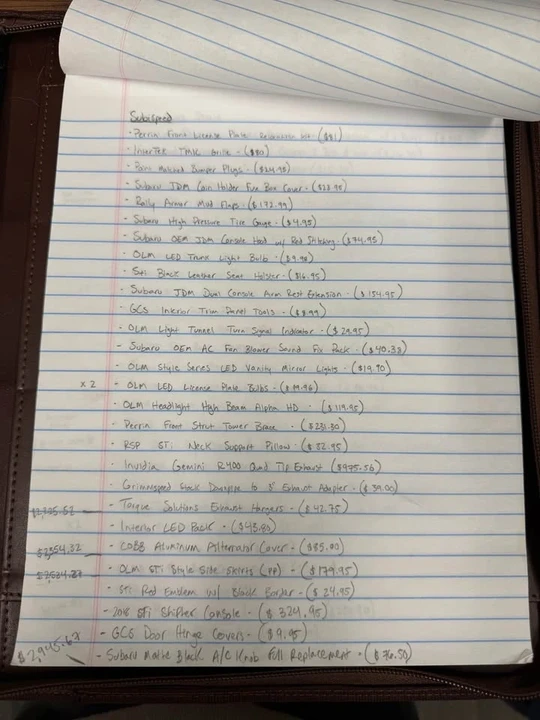 Subispeed
- Perrin Front License Plate Relocation Kit - ($81)
- InverTEK TMIC Grille - ($80)
- Paint Matched Bumper Plugs - ($24.95)
- Subaru JDM Coin Holder Fuse Box Cover - ($23.95)
- Rally Armor Mud Flaps - ($172.99)
- Subaru High Pressure Tire Gauge - ($4.95)
- Subaru OEM JDM Console Hood w/ Red Stitching - ($74.95)
- OLM LED Trunk Light Bulb - ($9.98)
- Sti Black Leather Seat - ($16.95)
- Subaru JDM Dual Console Arm Rest Extension - ($154.95)
- GCS Interior Trim Panel Tools - ($8.99)
- OLM Light Tunnel Turn Signal Indicator - ($29.95)
- Subaru OEM AC Fan Blower Sound Fix Pack - ($40.38)
- OLM Style Series LED Vanity Mirror Lights - ($19.90)
x2 - OLM LED License Plate Bulbs - ($19.96)
- OLM Headlight High Beam Alpha HD - ($119.95)
- Perrin Front Strut Tower Brace - ($231.30)
- RSP STi Neck Support Pillow - ($52.95)
- Invidia Gemini R400 Quad Tip Exhaust ($975.56)
- Grimmspeed Stock Downpipe to 3" Exhaust Adapter - ($39.00)
- Torque Solutions Exhaust Hangers - ($42.75)
- Interior LED Pack - ($43.80)
$2,354.32 - COBB Aluminum Alternator Cover - ($85.00)
- OLM STi Style Side Skirts (PP) - ($179.95)
- STi Red Emblem w/ Black Border - ($24.95)
- 2018 STi Shifter Console - ($324.95)
- GCS Door Hinge Covers - ($9.95)
$2,945.67 - Subaru Matte Black A/C Knob Full Replacement - ($76.50)